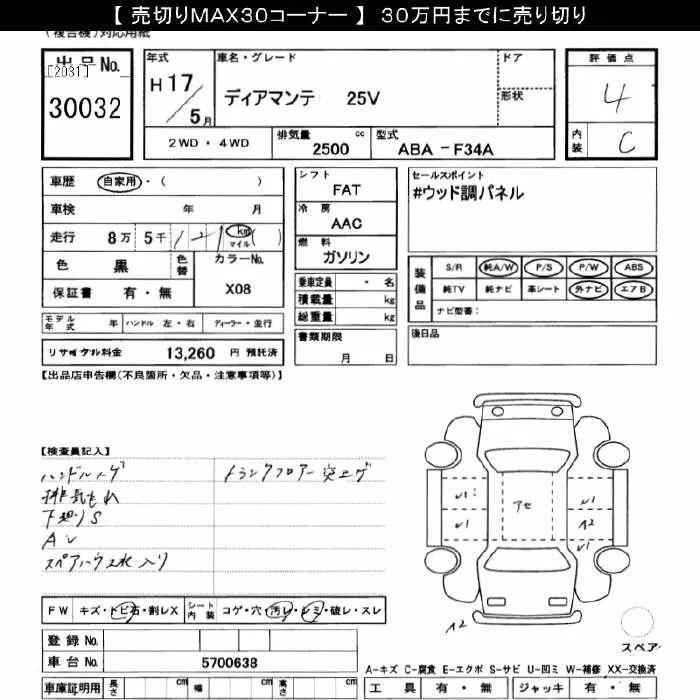 【 売切りMAX30コーナー 】 30万円までに売り切り
(複合機)対応用紙
出品No.
[2031]
30032
年式
H17/5月
車名・グレード
ディアマンテ 25V
ドア
形状
評価点
4
内装
C
2WD・4WD
排気量 cc
2500
型式
ABA－F34A
車歴 自家用・( )
車検 年 月
走行 8万 5千 121 km マイル ( )
色 黒
色替
カラーNo.
X08
保証書 有・無
シフト
FAT
冷房
AAC
燃料
ガソリン
乗車定員 ・ 名
積載量 kg
総重量 kg
書類期限
月 日
セールスポイント
#ウッド調パネル
装備品
S/R 純A/W P/S P/W ABS
純TV 純ナビ 革シート 外ナビ エアB
ナビ型番：
後日品
モデル年式 年 ハンドル 左・右 ディーラー・並行
リサイクル料金 13,260 円 預託済
【出品店申告欄(不良箇所・欠品・注意事項等)】
【検査員記入】
ハンドルハゲ
排気もれ
下廻りS
AV
スペアハウス水入り
トランクフロアー突上ゲ
アセ
U1
U1
U1
A2
A2
スペア
FW キズ・トビ石・割レX シート内装 コゲ・穴・汚レ・シミ・破レ・スレ
登録No.
車台No. 5700638
車庫証明用 長さ cm 幅 cm 高さ cm
A-キズ C-腐食 E-エクボ S-サビ U-凹ミ W-補修 XX-交換済
工具 有・無 ジャッキ 有・無